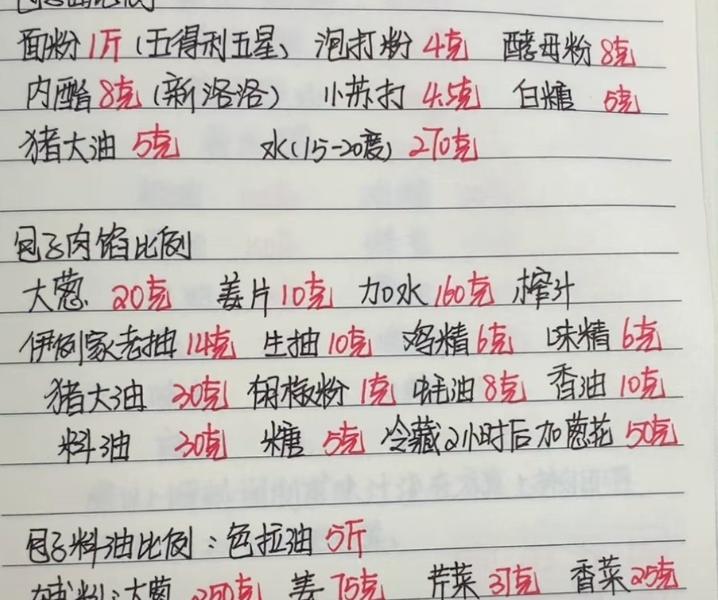 面粉1斤(五得利五星) 泡打粉4克 酵母粉8克
内酯8克(新洛洛) 小苏打4.5克 白糖 5克
猪大油 5克 水(15-20度)270克
包子肉馅比例
大葱 20克 姜片10克 加水160克 榨汁
伊例家老抽14克 生抽10克 鸡精6克 味精6克
猪大油 30克 胡椒粉1克 蚝油8克 香油10克
料油 30克 糖 5克 冷藏2小时后加葱花50克
包子料油比例:色拉油5斤
大葱 250克 姜75克 芹菜37克 香菜25克